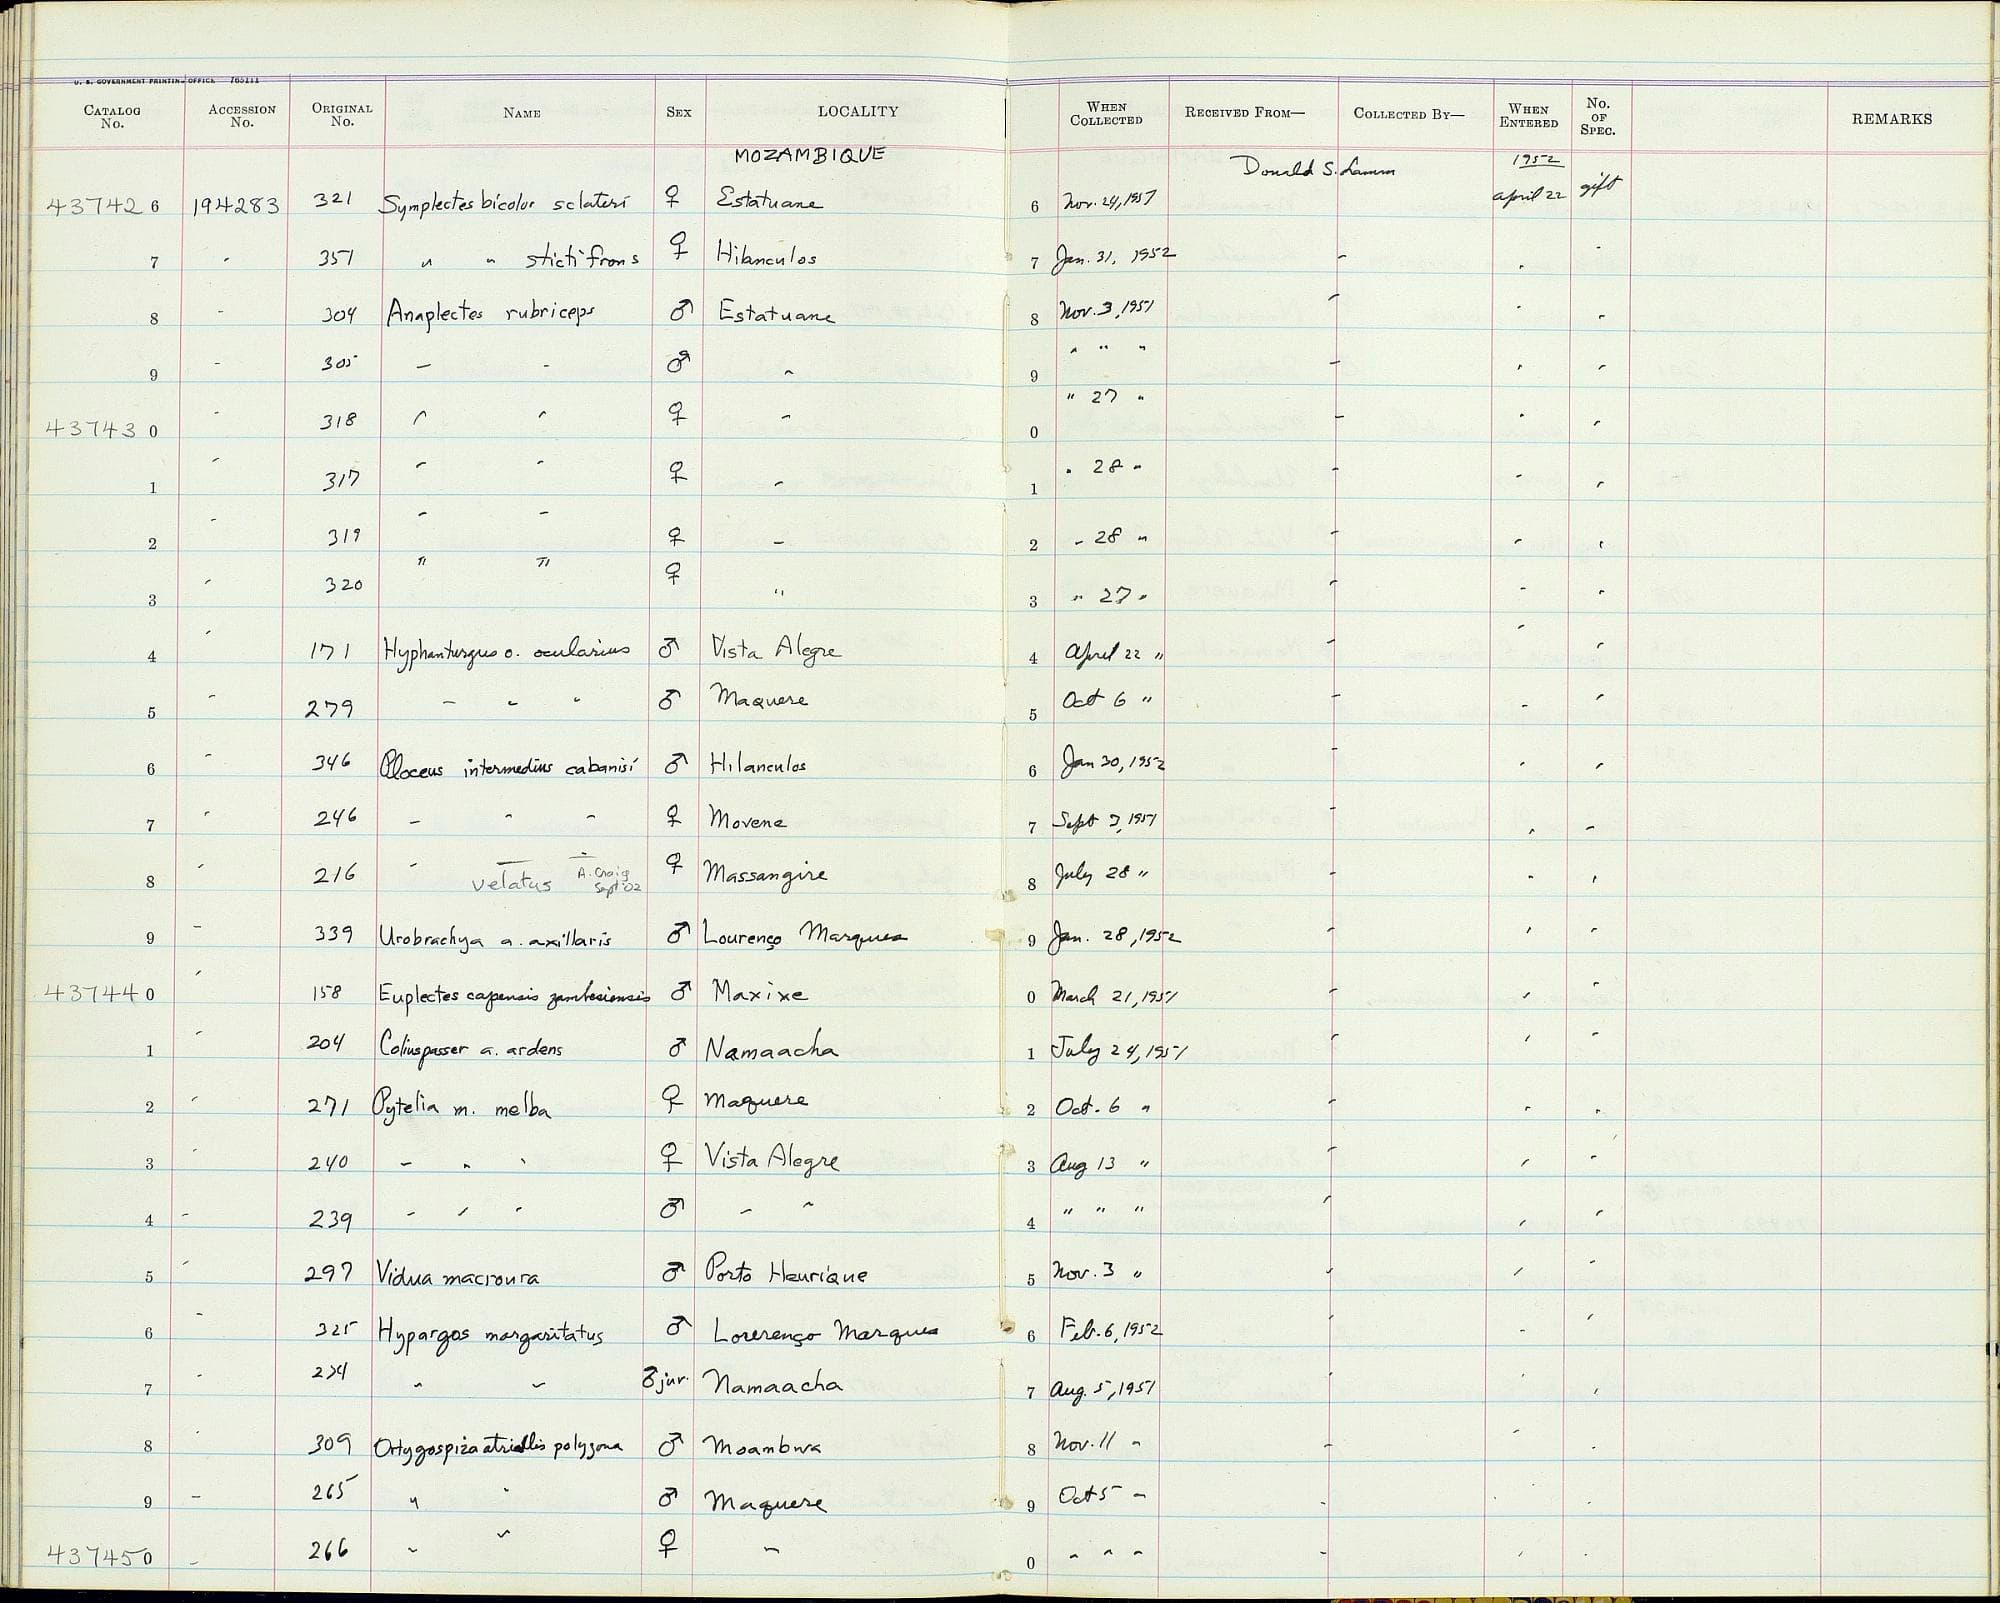 U. S. GOVERNMENT PRINTING OFFICE 765111
CATALOG No. ACCESSION No. ORIGINAL No. NAME SEX LOCALITY WHEN COLLECTED RECEIVED FROM— COLLECTED BY— WHEN ENTERED No. OF SPEC. REMARKS
MOZAMBIQUE Donald S. Lamm 1952
437426 194283 321 Symplectes bicolor sclateri ♀ Estatuane 6 Nov. 24, 1951 april 22 gift
7 - 351 " " stictifrons ♀ Hilanculos 7 Jan. 31, 1952 - - -
8 - 304 Anaplectes rubriceps ♂ Estatuane 8 Nov. 3, 1951 - - -
9 - 305 - - ♂ - 9 " " " - - -
437430 - 318 " " ♀ - 0 " 27 " - - -
1 - 317 - - ♀ - 1 " 28 " - - -
2 - 319 - - ♀ - 2 - 28 " - - -
3 - 320 " " ♀ " 3 " 27 " - - -
4 - 171 Hyphanturgus o. ocularius ♂ Vista Alegre 4 April 22 " - - -
5 - 279 - - - ♂ Maquere 5 Oct 6 " - - -
6 - 346 Ploceus intermedius cabanisi ♂ Hilanculos 6 Jan 30, 1952 - - -
7 - 246 - - - ♀ Movene 7 Sept 3, 1951 - - -
8 - 216 - - - ♀ Massangire 8 July 28 " - - -
velatus A. Craig Sept '02
9 - 339 Urobrachya a. axillaris ♂ Lourenço Marques 9 Jan. 28, 1952 - - -
437440 - 158 Euplectes capensis zambesiensis ♂ Maxixe 0 March 21, 1951 - - -
1 - 204 Coliuspasser a. ardens ♂ Namaacha 1 July 24, 1951 - - -
2 - 271 Pytelia m. melba ♀ Maquere 2 Oct. 6 " - - -
3 - 240 - - - ♀ Vista Alegre 3 Aug 13 " - - -
4 - 239 - - - ♂ - - 4 " " " - - -
5 - 297 Vidua macroura ♂ Porto Henrique 5 Nov. 3 " - - -
6 - 325 Hypargos margaritatus ♂ Lourenço Marques 6 Feb. 6, 1952 - - -
7 - " " ♂ juv. Namaacha 7 Aug. 5, 1951 - - -
8 - 309 Ortygospiza atricollis polyzona ♂ Moambwa 8 Nov. 11 " - - -
9 - 265 " " ♂ Maquere 9 Oct 5 " - - -
437450 - 266 " " ♀ - 0 " " " - - -